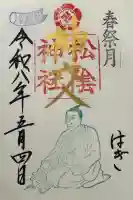 春祭月
松陰
神社
はぎ
令和八年五月四日